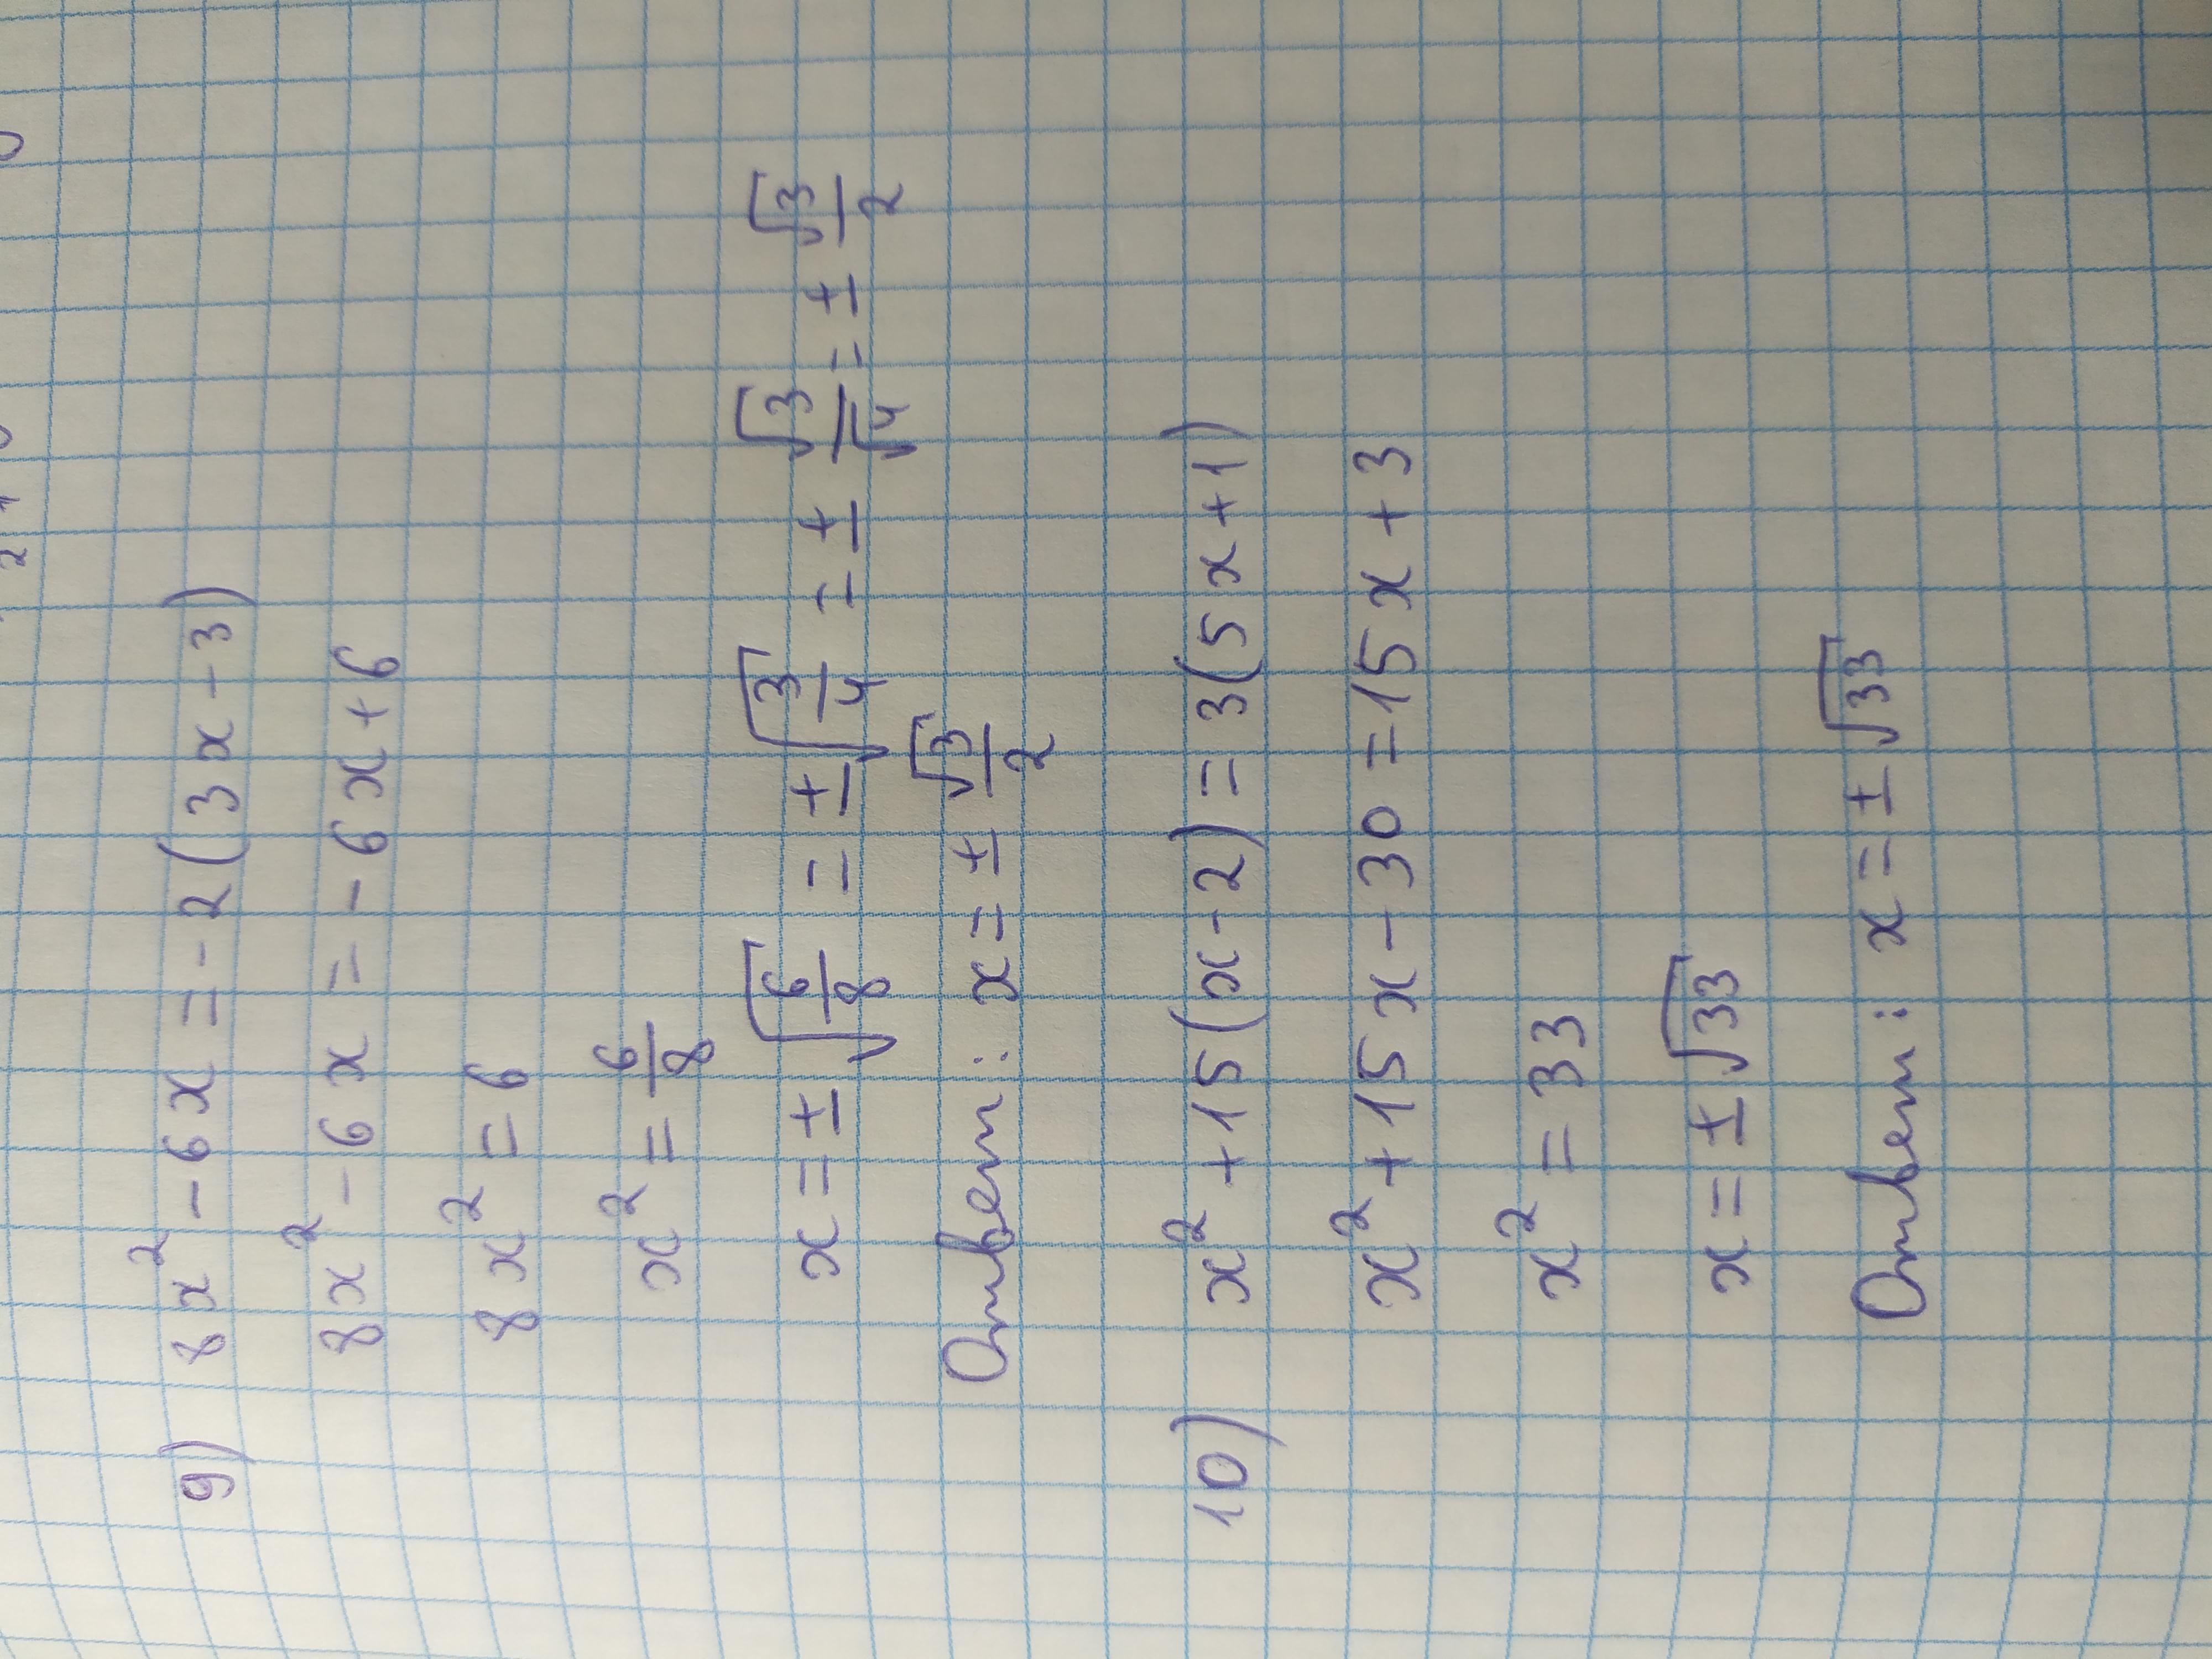 9) 8x² - 6x = -2(3x - 3)
8x² - 6x = -6x + 6
8x² = 6
x² = 6/8
x = ± √(6/8) = ± √(3/4) = ± √3/√4 = ± √3/2
Ответ: x = ± √3/2
10) x² + 15(x - 2) = 3(5x + 1)
x² + 15x - 30 = 15x + 3
x² = 33
x = ± √33
Ответ: x = ± √33